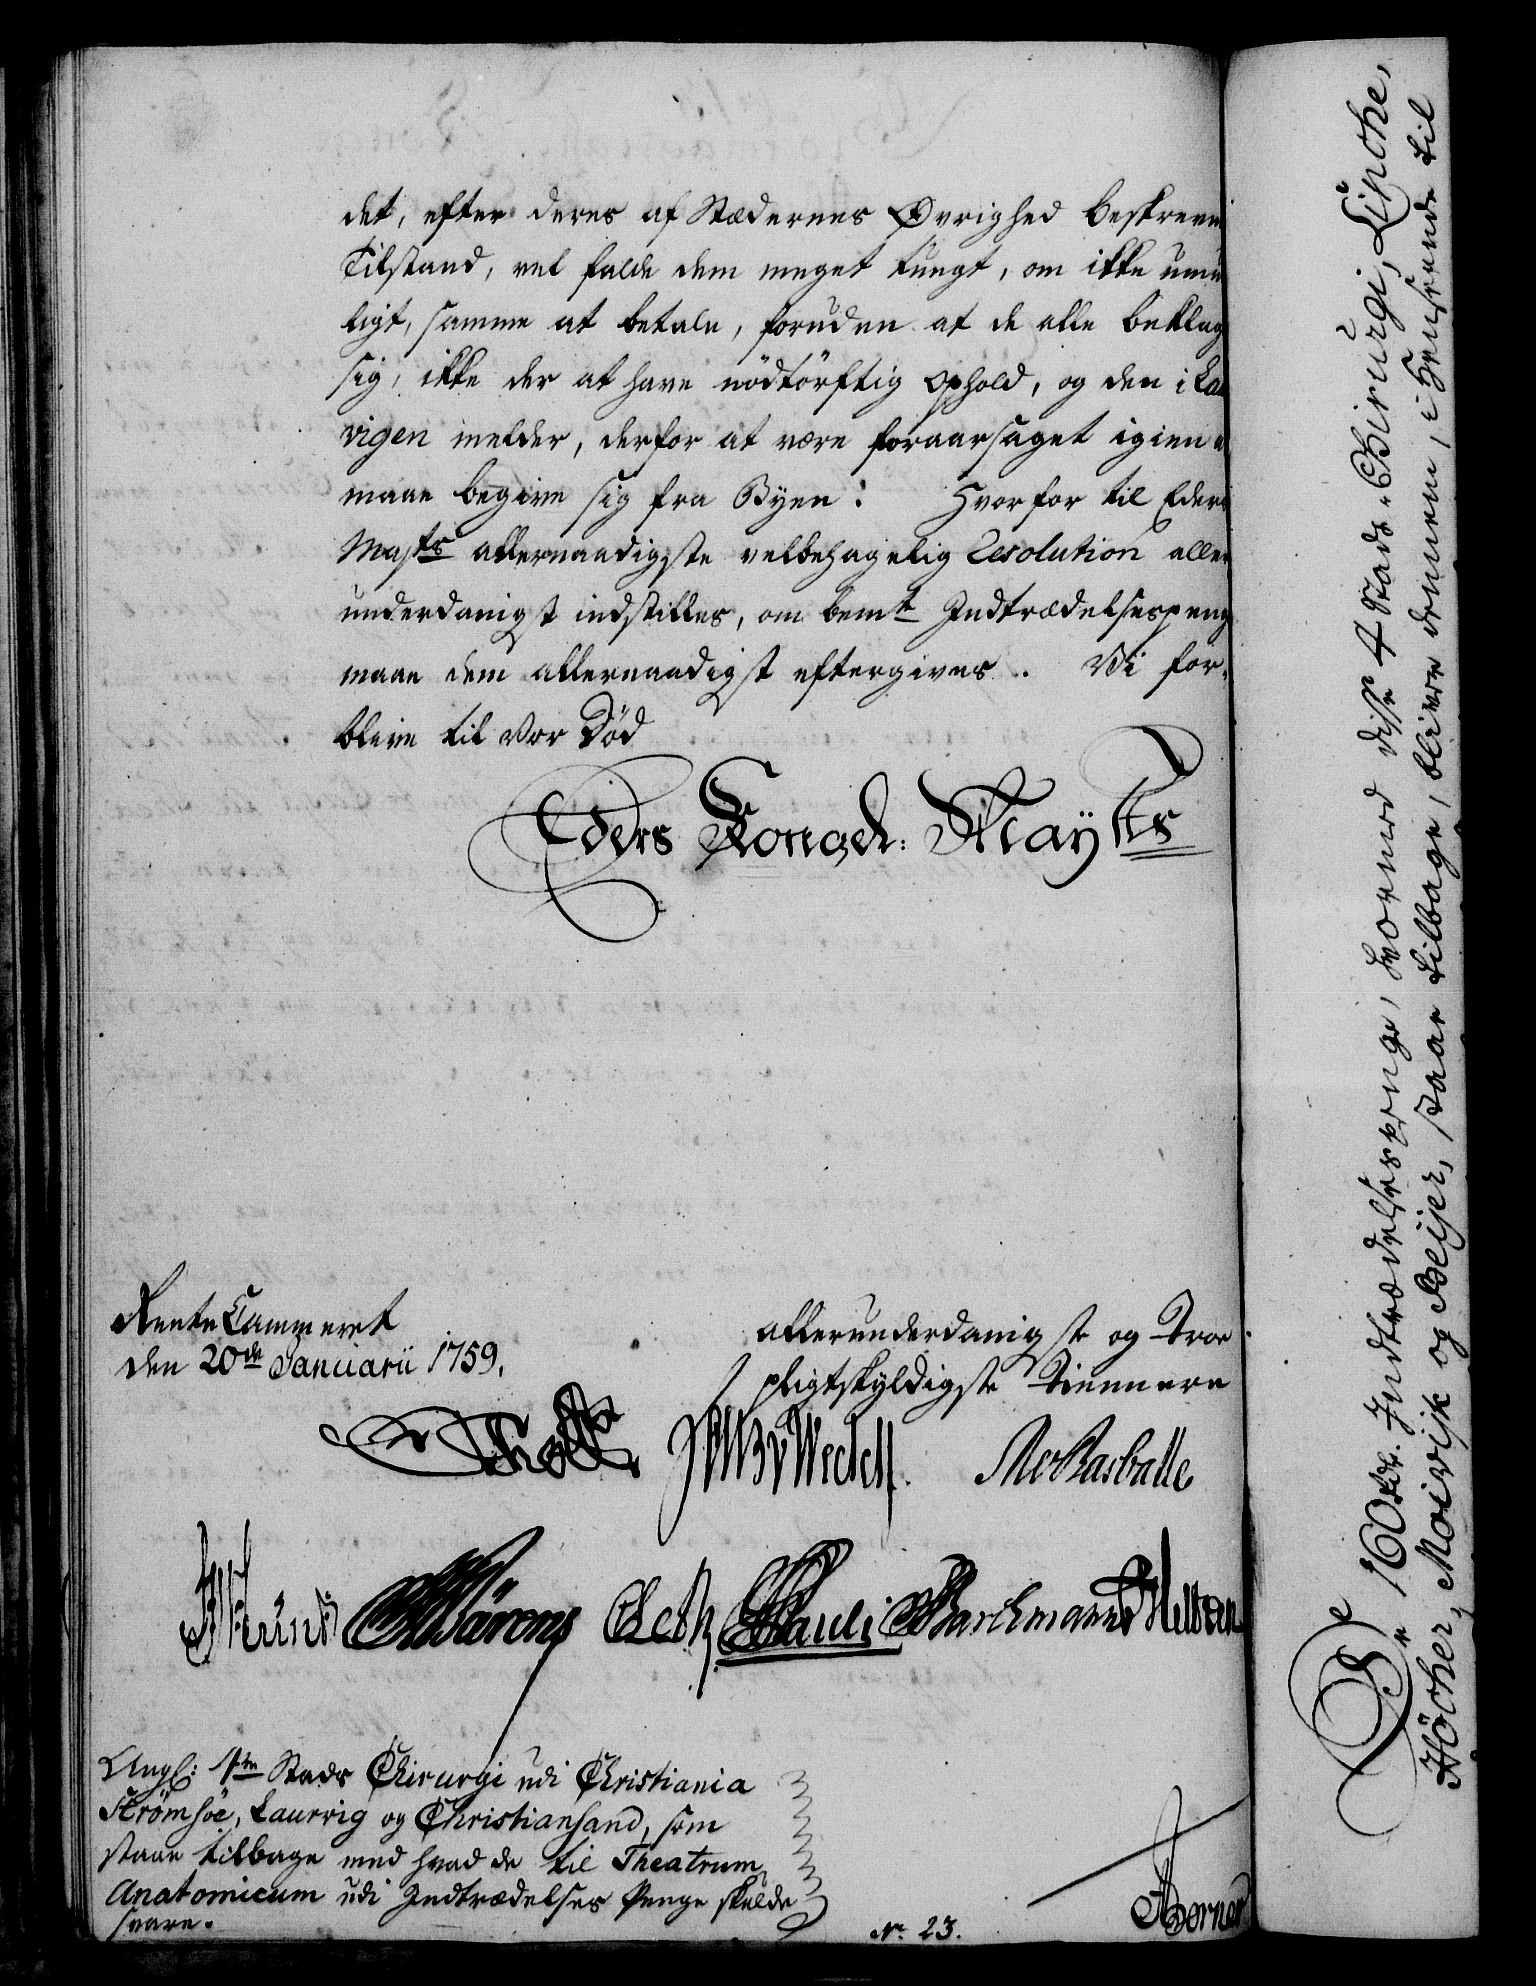 det, efter deres af Stædernes Øvrighed beskrevne
Tilstand, vel falde dem meget tungt, om ikke umu
ligt, samme at betale, foruden at de alle beklage
sig, ikke der at have nödtörftig Ophold, og den i Lau
vigen melder, derfor at være foraarsaget igien at
maae begive sig fra Byen: Hvorfor til Eders
Majts allernaadigste velbehagelig Resolution aller
underdanigst indstilles, om bemte Indtrædelsespenge
maae dem allernaadigst eftergives. Vi for,
blive til Vor Död
Eders Kongel: Mayts
Rente Cammeret
den 20de Januarii 1759.
allerunderdanigste og Troe
pligtskyldigste Tienere
Thott
Wedell
Raaballe
Pauli
Barchmann
Ang: 4re Stads Chirurgi udi Christiania
Strömsöe, Laurvig og Christiansand, som
staae tilbage med hvad de til Theatrum
Anatomicum udi Indtrædelses Penge skulde
svare.
No. 23.
De 160 rdr. Indtrædelsespenge, hvormed disse 4 Stads-Chirurgi, Lipche,
Höcher, Moirisk og Beijer, staae tilbage, blive dennem, i Henseende til